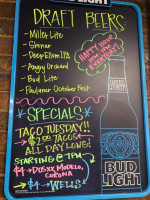 BUD LIGHT
DRAFT BEERS
- Miller Lite
- Shiner
- Deep Ellum IPA
- Angry Orchard
- Bud Lite
- Paulaner October Fest
HAPPY HOUR
EVERYDAY!
SPECIALS
TACO TUESDAY!!
$2.00 TACOS
ALL DAY LONG!
STARTING @ 7PM
$4 → DOS XX, MODELO,
CORONA
→ $4 → WELLS
BUD
LIGHT